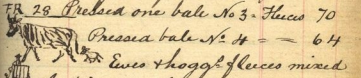 FR 28 Pressed one bale No 3 - Fleeces 70
Pressed bale No 4 = = 64
Ewes & hoggs fleeces mixed